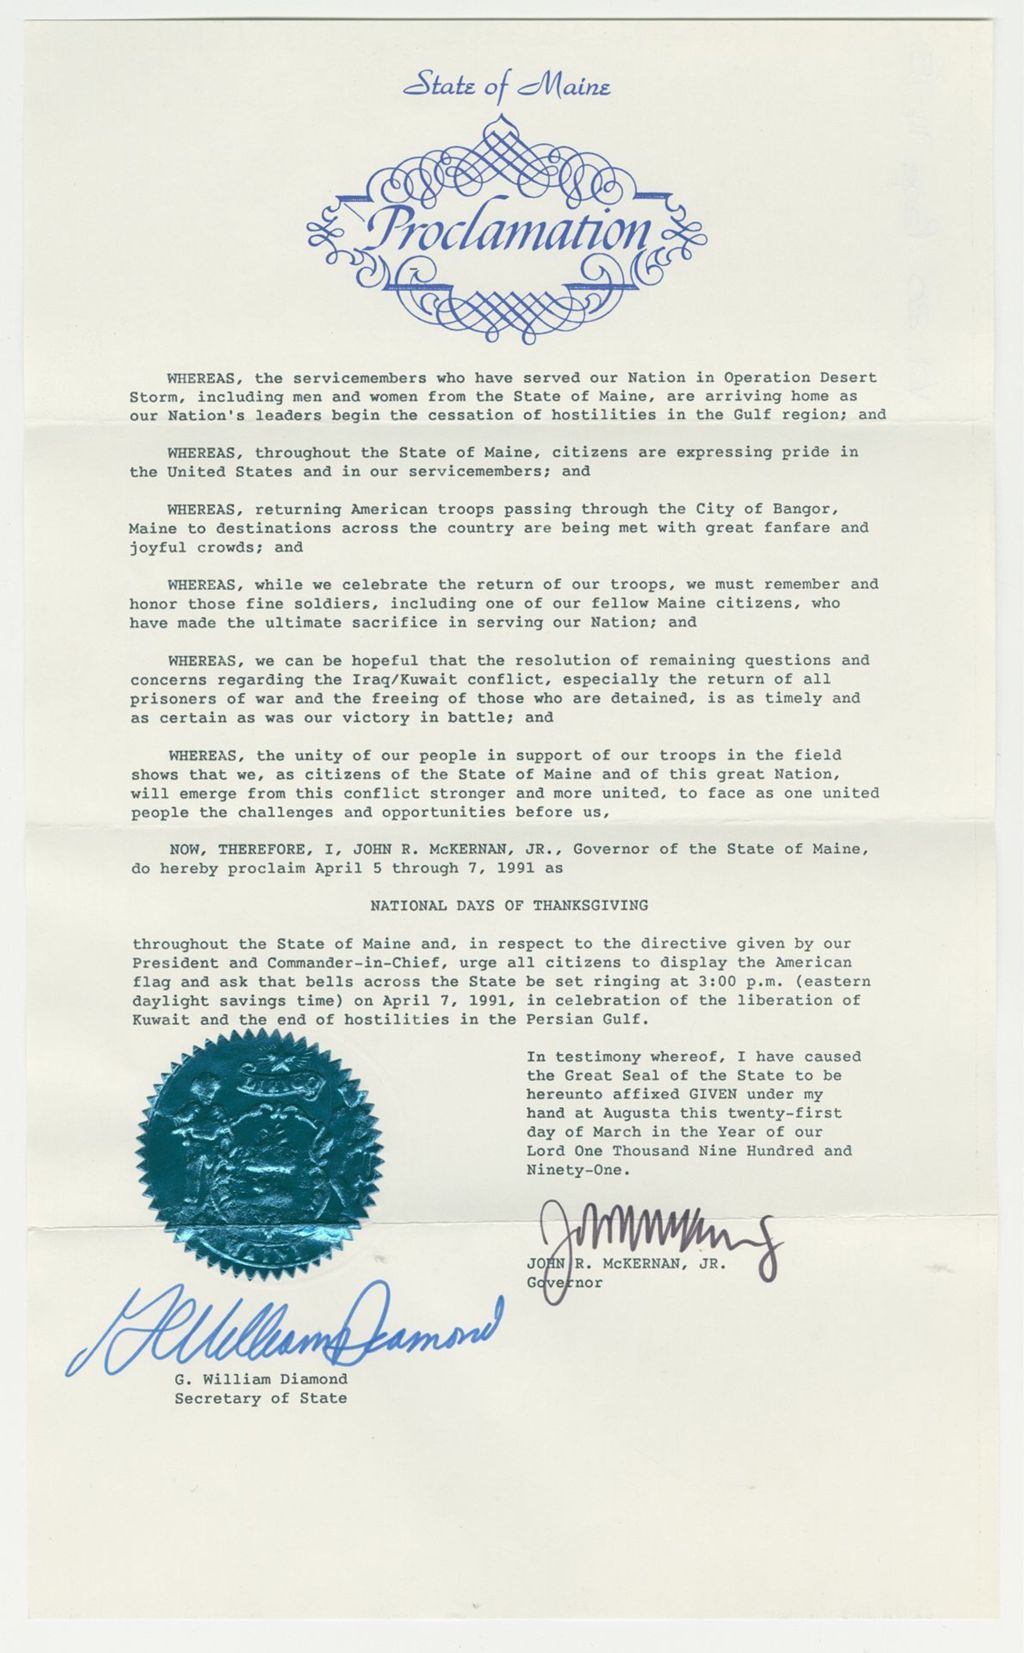 State of Maine
Proclamation
WHEREAS, the servicemembers who have served our Nation in Operation Desert
Storm, including men and women from the State of Maine, are arriving home as
our Nation's leaders begin the cessation of hostilities in the Gulf region; and
WHEREAS, throughout the State of Maine, citizens are expressing pride in
the United States and in our servicemembers; and
WHEREAS, returning American troops passing through the City of Bangor,
Maine to destinations across the country are being met with great fanfare and
joyful crowds; and
WHEREAS, while we celebrate the return of our troops, we must remember and
honor those fine soldiers, including one of our fellow Maine citizens, who
have made the ultimate sacrifice in serving our Nation; and
WHEREAS, we can be hopeful that the resolution of remaining questions and
concerns regarding the Iraq/Kuwait conflict, especially the return of all
prisoners of war and the freeing of those who are detained, is as timely and
as certain as was our victory in battle; and
WHEREAS, the unity of our people in support of our troops in the field
shows that we, as citizens of the State of Maine and of this great Nation,
will emerge from this conflict stronger and more united, to face as one united
people the challenges and opportunities before us,
NOW, THEREFORE, I, JOHN R. McKERNAN, JR., Governor of the State of Maine,
do hereby proclaim April 5 through 7, 1991 as
NATIONAL DAYS OF THANKSGIVING
throughout the State of Maine and, in respect to the directive given by our
President and Commander-in-Chief, urge all citizens to display the American
flag and ask that bells across the State be set ringing at 3:00 p.m. (eastern
daylight savings time) on April 7, 1991, in celebration of the liberation of
Kuwait and the end of hostilities in the Persian Gulf.
In testimony whereof, I have caused
the Great Seal of the State to be
hereunto affixed GIVEN under my
hand at Augusta this twenty-first
day of March in the Year of our
Lord One Thousand Nine Hundred and
Ninety-One.
JOHN R. McKERNAN, JR.
Governor
G William Diamond
G. William Diamond
Secretary of State